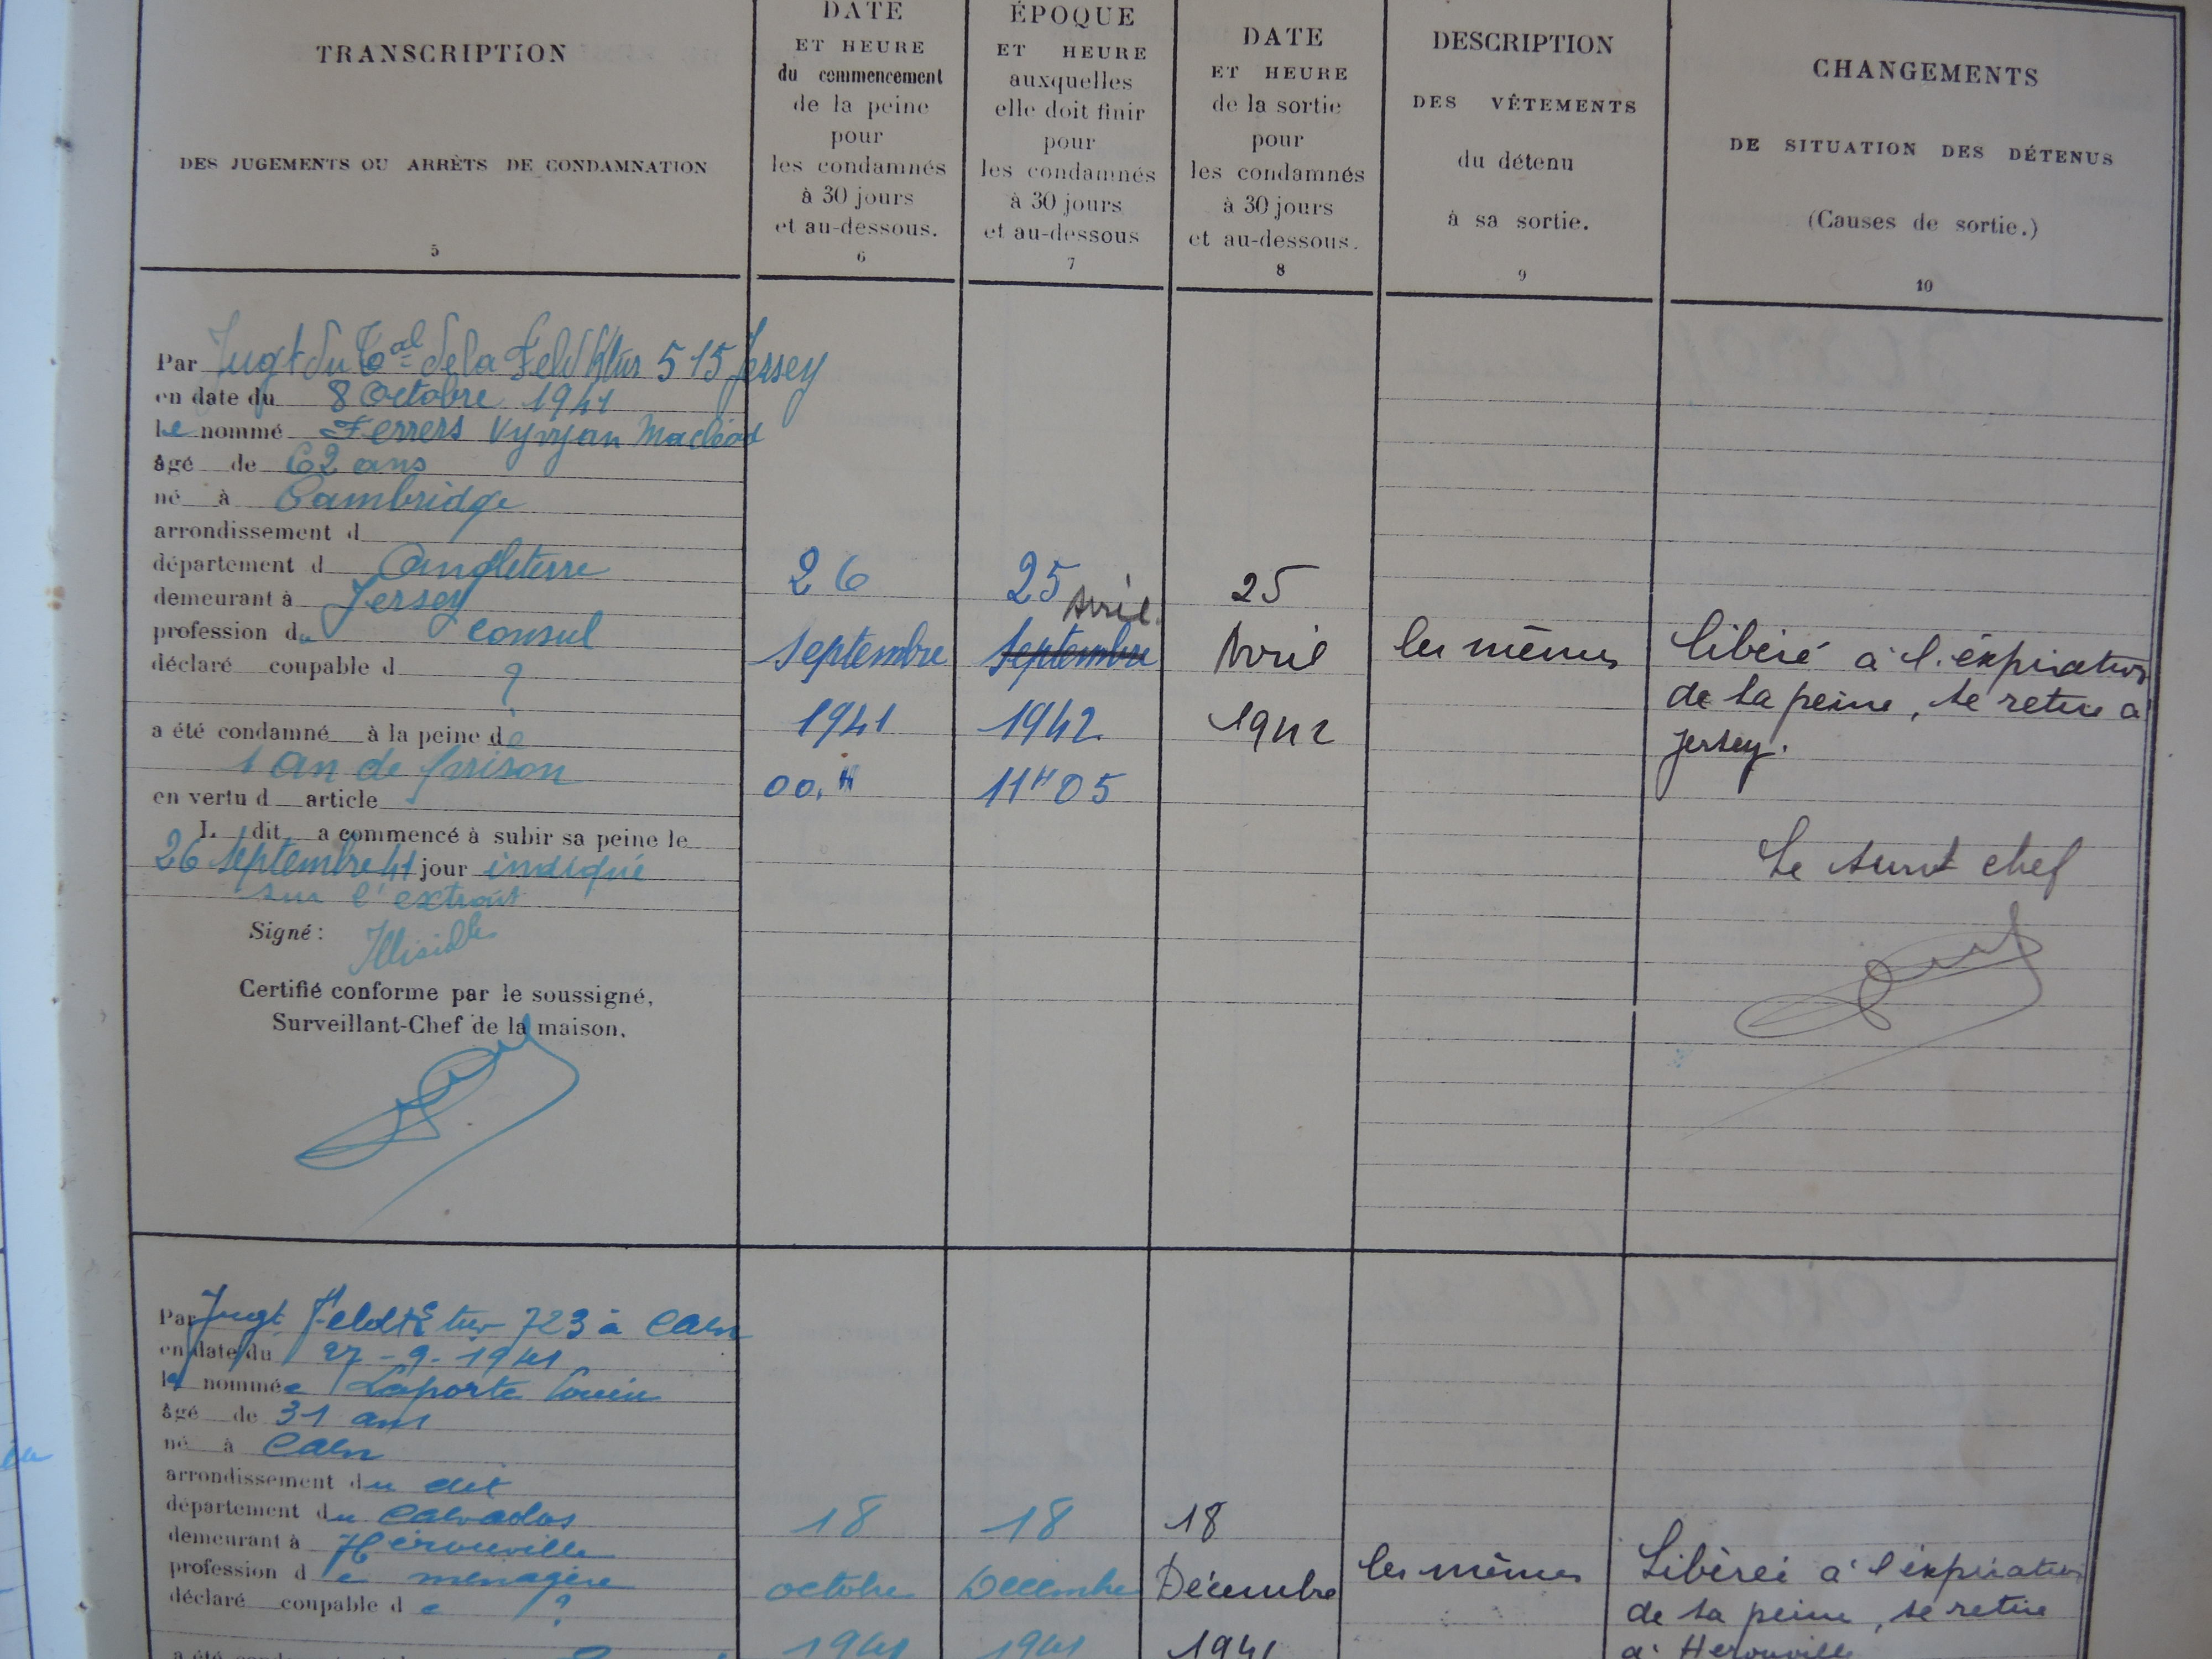 TRANSCRIPTION
DES JUGEMENTS OU ARRÊTS DE CONDAMNATION
5
DATE
ET HEURE
du commencement
de la peine
pour
les condamnés
à 30 jours
et au-dessous.
6
ÉPOQUE
ET HEURE
auxquelles
elle doit finir
pour
les condamnés
à 30 jours
et au-dessous
7
DATE
ET HEURE
de la sortie
pour
les condamnés
à 30 jours
et au-dessous.
8
DESCRIPTION
DES VÊTEMENTS
du détenu
à sa sortie.
9
CHANGEMENTS
DE SITUATION DES DÉTENUS
(Causes de sortie.)
10
Par Jugt du Tal de la Feld Ktur 515 Jersey
en date du 8 Octobre 1941
le nommé Ferrers Vyvyan Macleod
âgé de 62 ans
né à Cambridge
arrondissement d
département d Angleterre
demeurant à Jersey
profession du consul
déclaré coupable d ?
a été condamné à la peine de
1 an de prison
en vertu d article
L dit a commencé à subir sa peine le
26 septembre 41 jour indiqué
sur l'extrait
Signé : Illisible
Certifié conforme par le soussigné,
Surveillant-Chef de la maison,
26
septembre
1941
00.H
25 Avril
septembre
1942
11H05
25
Avril
1942
les mêmes
libéré à l'éxpiration
de sa peine, se retire à
Jersey.
Le survt chef
Par Jugt Feld K tur 723 à Caen
en date du 27-9-1941
la nommée Laporte
âgé de 31 ans
né à Caen
arrondissement du dit
département du Calvados
demeurant à Hérouville
profession de ménagère
déclaré coupable de ?
a été
18
octobre
1941
18
Décembre
1941
18
Décembre
1941
les mêmes
Libérée à l'éxpiration
de sa peine, se retire
à Herouville